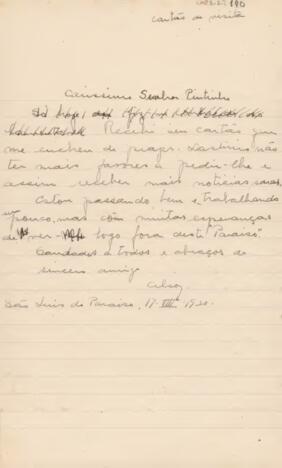 190
cartão de visita
Carissimo Senhor Pintinho
Recebi seu cartão que
me encheu de prazer. Lastimo não
ter mais favores a pedir-lhe e
assim receber mais noticias suas.
Estou passando bem e trabalhando
um pouco, mas com muitas esperanças
de ver- logo fora deste "Paraiso".
Saudades a todos e abraços do
sincero amigo
São Luis do Paraiso, 17-VIII-1920.